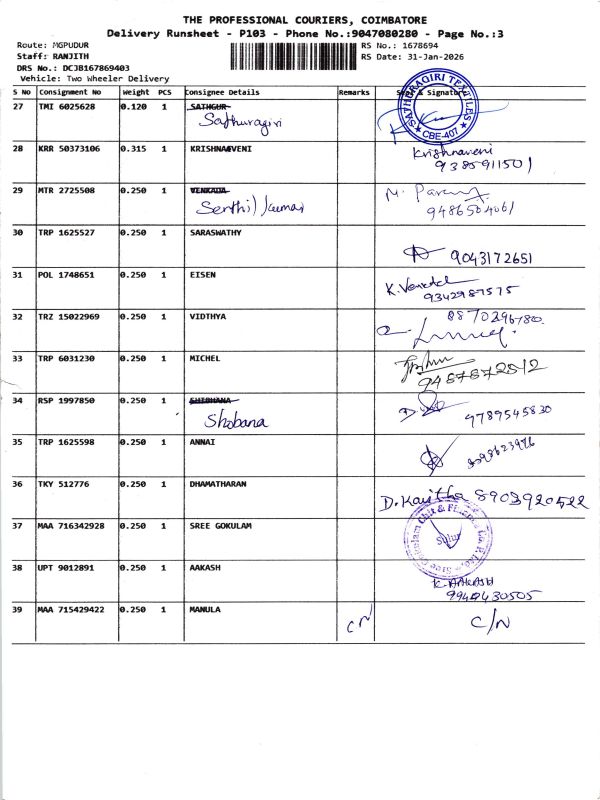 THE PROFESSIONAL COURIERS, COIMBATORE
Delivery Runsheet - P103 - Phone No.:9047080280 - Page No.:3
Route: MGPUDUR
RS No.: 1678694
Staff: RANJITH
RS Date: 31-Jan-2026
DRS No.: DCJB167869403
Vehicle: Two Wheeler Delivery
S No Consignment No Weight PCS Consignee Details Remarks & Signature
27 TMI 6025628 0.120 1 SATHGUR
Sathuragiri
SATHURAGIRI TEXTILES
CBE-407
28 KRR 50373106 0.315 1 KRISHNAVENI
Krishnaveni
9385911501
29 MTR 2725508 0.250 1 VENKADA
Senthil kumar
M.
9486504061
30 TRP 1625527 0.250 1 SARASWATHY
9043172651
31 POL 1748651 0.250 1 EISEN
K. Venkatel
9342987575
32 TRZ 15022969 0.250 1 VIDTHYA
33 TRP 6031230 0.250 1 MICHEL
9487872812
34 RSP 1997850 0.250 1 SHIBHANA
Shobana
9789545830
35 TRP 1625598 0.250 1 ANNAI
36 TKY 512776 0.250 1 DHAMATHARAN
D. Kavitha 8903920522
37 MAA 716342928 0.250 1 SREE GOKULAM
Sulur
38 UPT 9012891 0.250 1 AAKASH
K. AAKASH
9940430505
39 MAA 715429422 0.250 1 MANULA
C/N
C/N